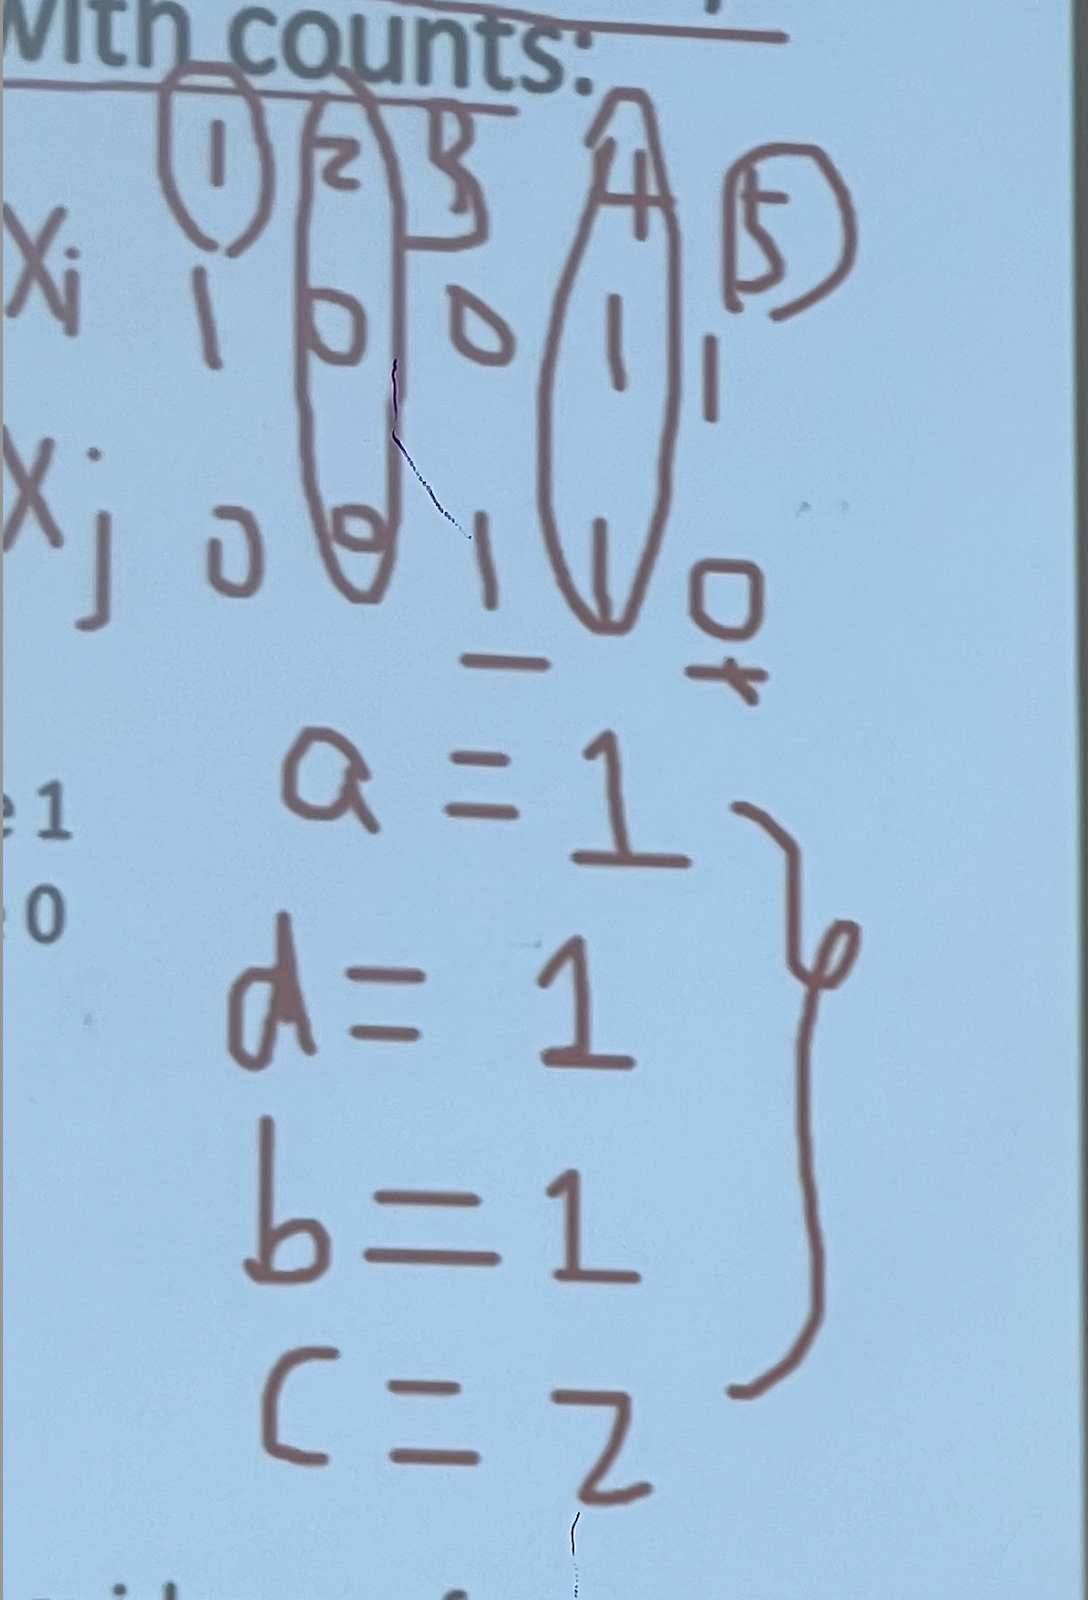 with counts:
1 2 3 4 5
Xi 1 0 0 1 1
Xj 0 0 1 1 0
a = 1
1
d = 1
0
b = 1
c = 2